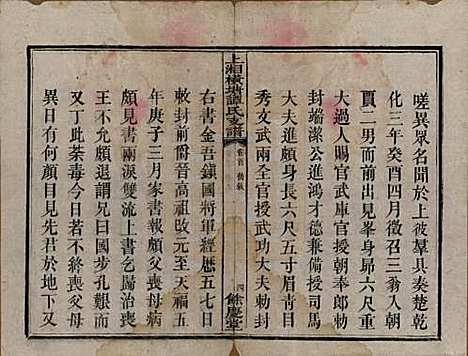 嗟異眾名聞於上被羣具奏楚乾
化三年癸酉四月徵召三翁入朝
賈二男而前出見峯身昻六尺重
大過人賜官武庫官授朝奉郎勅
封端潔公進鴻才德兼備授司
大夫進頗身長六尺五寸眉青目
秀文武兩全官授武功大夫勅封
上湘橫塘譚氏支譜
卷首 舊敘
四
餘慶堂
右書金吾鎮國將軍經厯五七日
敕封前爵晉高祖改元至天福五
年庚子三月家書報頗父喪母病
頗見書兩淚雙流上書乞歸治喪
王不允頗退謂兄曰國步孔艱而
又丁此荼毒今日若不奔父喪母
異日有何顏目見先君於地下又